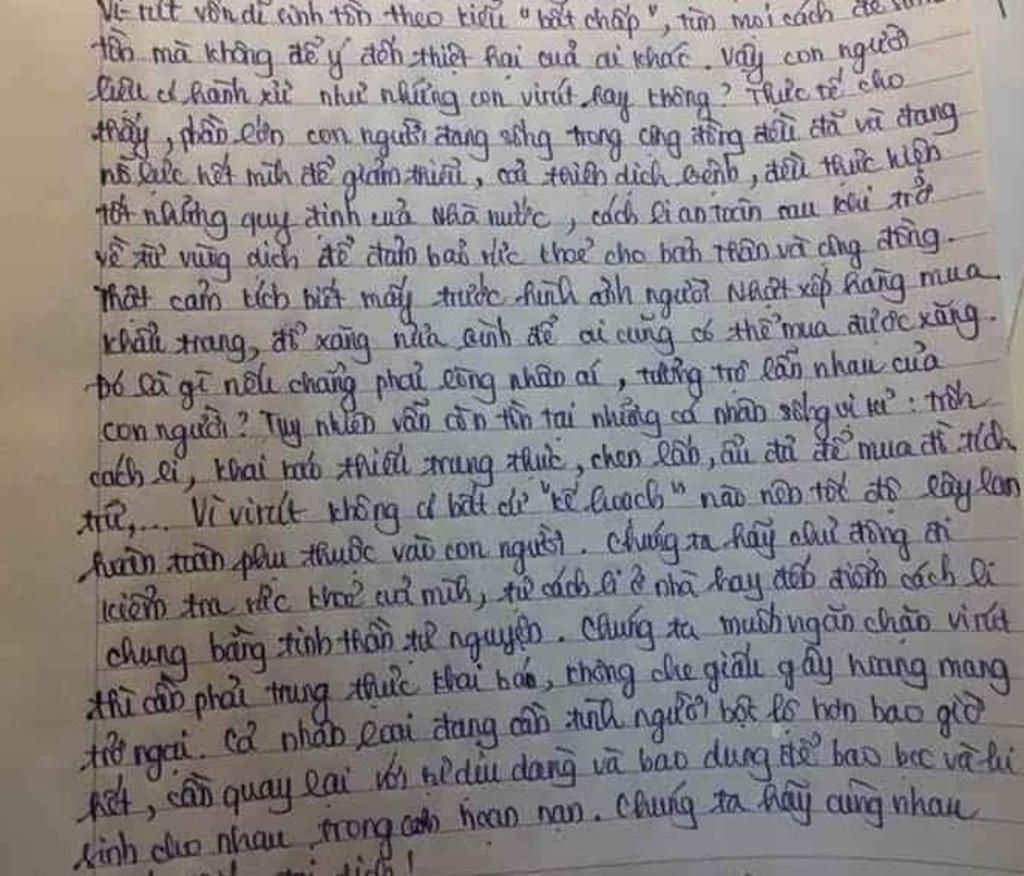 Vi rút vốn dĩ sinh tồn theo kiểu "bất chấp", tìm mọi cách để
tồn mà không để ý đến thiệt hại của ai khác. Vậy con người
liệu có hành xử như những con virút hay không? Thực tế cho
thấy, phần lớn con người đang sống trong cộng đồng đều đã và đang
nỗ lực hết mình để giảm thiểu, cả thiên dịch bệnh, đều thực hiện
tốt những quy định của Nhà nước, cách li an toàn sau khi trở
về từ vùng dịch để đảm bảo sức khoẻ cho bản thân và cộng đồng.
Thật cảm kích biết mấy trước hình ảnh người Nhật xếp hàng mua
khẩu trang, đổ xăng nửa bình để ai cũng có thể mua được xăng.
Đó là gì nếu chẳng phải lòng nhân ái, tương trợ lẫn nhau của
con người? Tuy nhiên vẫn còn tồn tại những cá nhân sống vị kỉ: trốn
cách li, khai báo thiếu trung thực, chen lấn, ẩu đả để mua đồ tích
trữ,... Vì virút không có bất cứ "kế hoạch" nào nên tốc độ lây lan
hoàn toàn phụ thuộc vào con người. Chúng ta hãy chủ động đi
kiểm tra sức khoẻ của mình, tự cách li ở nhà hay đến điểm cách li
chung bằng tinh thần tự nguyện. Chúng ta muốn ngăn chặn virút
thì cần phải trung thực khai báo, không che giấu gây hoang mang
trở ngại. Cả nhân loại đang cần tình người bột lộ hơn bao giờ
hết, cần quay lại với sự dịu dàng và bao dung để bao bọc và hi
sinh cho nhau trong cơn hoạn nạn. Chúng ta hãy cùng nhau
dịch!